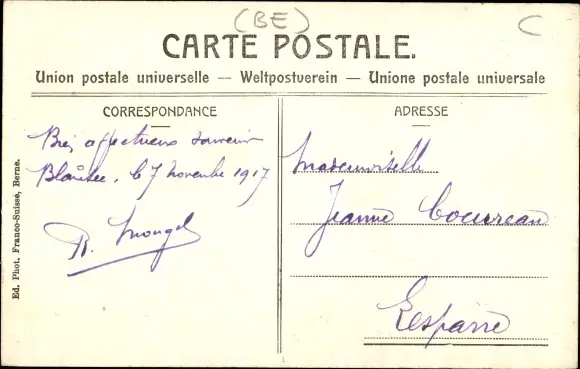 (BE)
C
CARTE POSTALE.
Union postale universelle — Weltpostverein — Unione postale universale
CORRESPONDANCE
ADRESSE
Bien affectueux souvenir
le 7 novembre 1917
R. Mongel
Mademoiselle
Jeanne Coureau
Lesparre
Ed. Phot. Franco-Suisse, Berne.